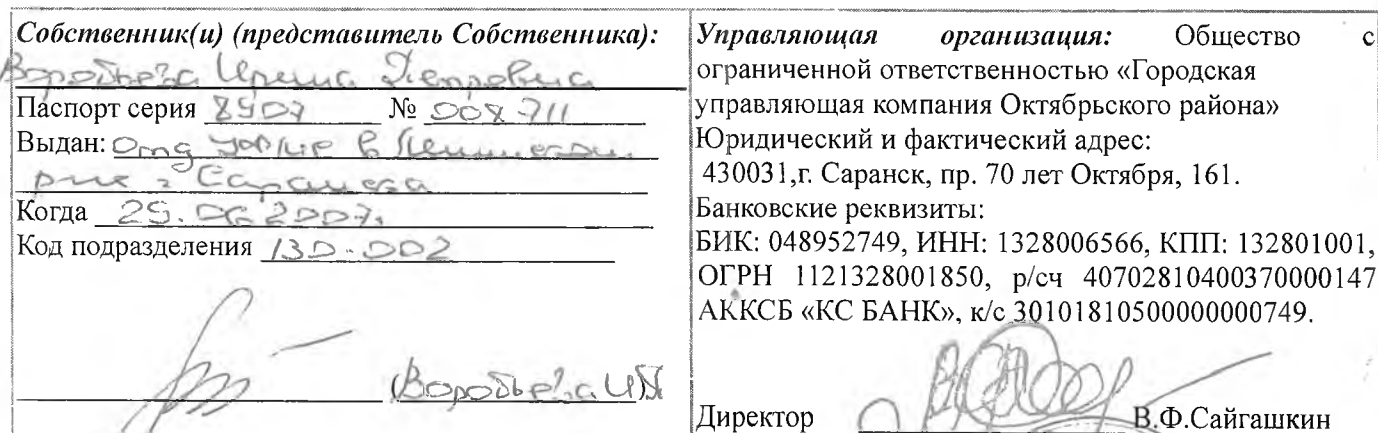 Собственник(и) (представитель Собственника):
Воробьева Ирина Петровна
Паспорт серия 8907 № 008 711
Выдан: Отд УФМС в Ленинском
р-не г Саранска
Когда 25.06.2007.
Код подразделения 130-002
(Воробьева ИП)
Управляющая организация: Общество с
ограниченной ответственностью «Городская
управляющая компания Октябрьского района»
Юридический и фактический адрес:
430031,г. Саранск, пр. 70 лет Октября, 161.
Банковские реквизиты:
БИК: 048952749, ИНН: 1328006566, КПП: 132801001,
ОГРН 1121328001850, р/сч 40702810400370000147
АККСБ «КС БАНК», к/с 30101810500000000749.
Директор В.Ф.Сайгашкин